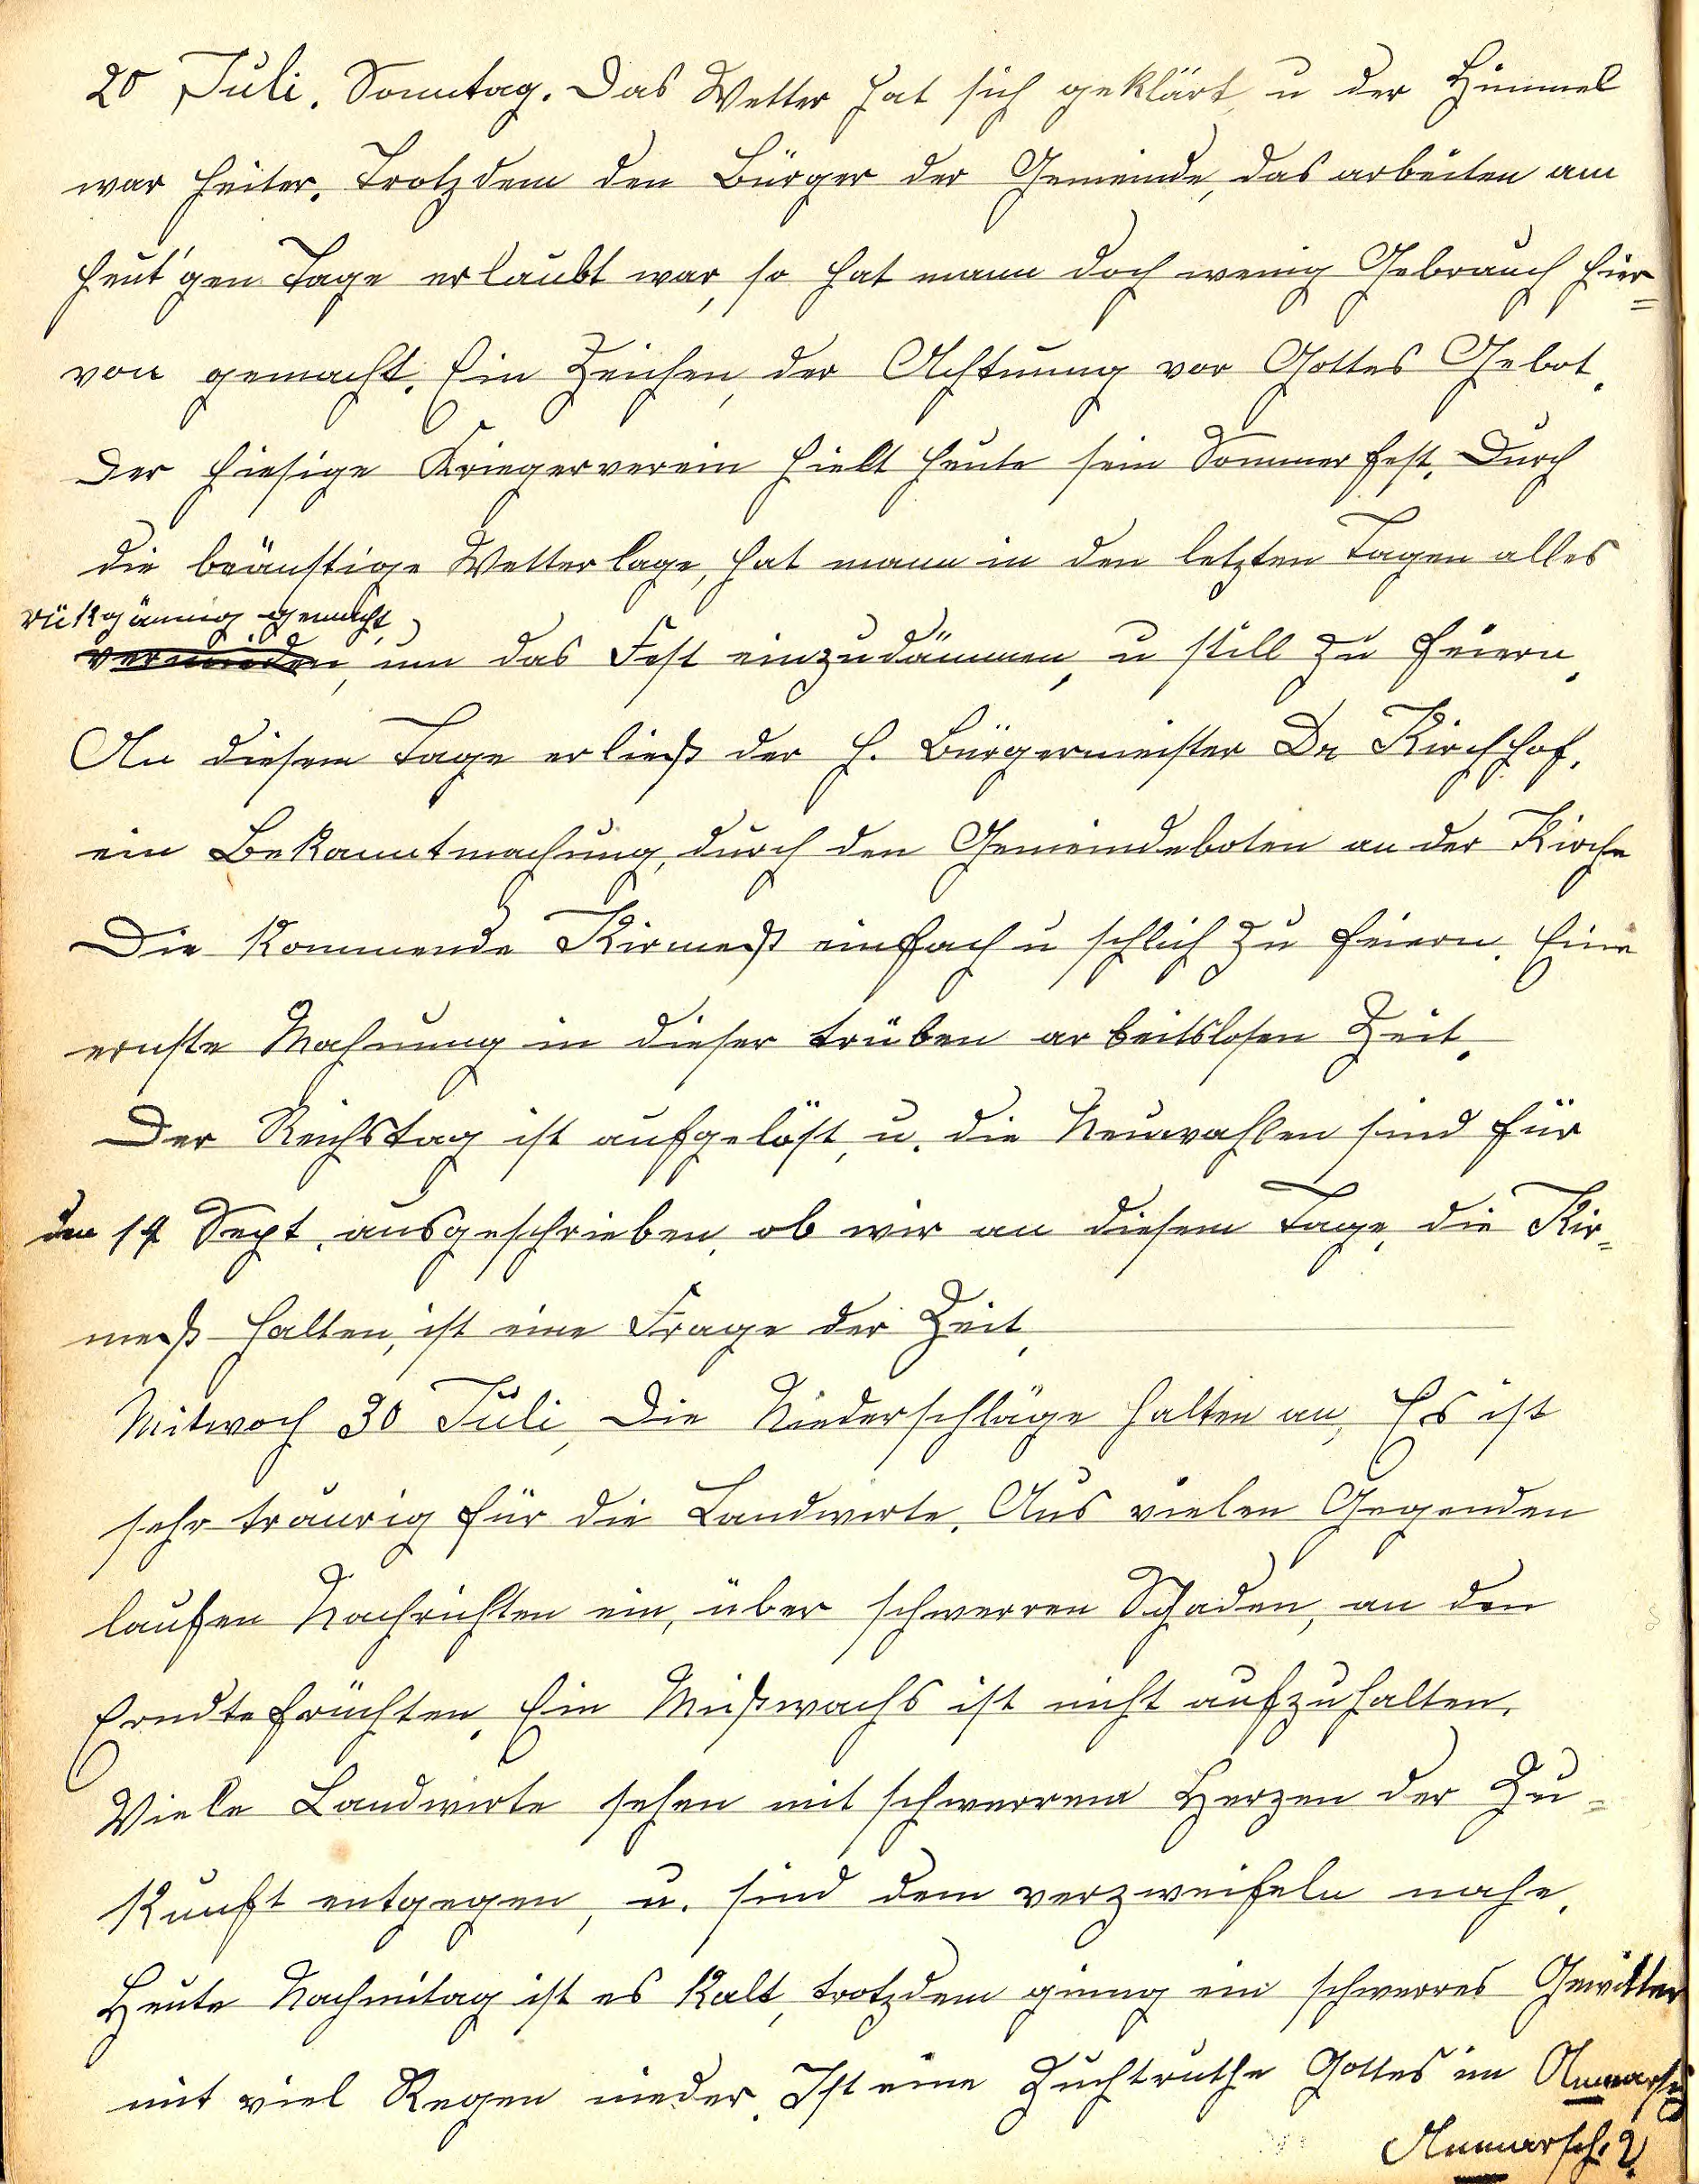 20 Juli. Sonntag. Das Wetter hat sich geklärt, u der Himmel
war heiter. Trotzdem den Bürger der Gemeinde, das arbeiten am
heut'gen Tage erlaubt war, so hat mann doch wenig Gebrauch hier=
von gemacht. Ein Zeichen, der Achtuung vor Gottes Gebot.
Der hiesige Kriegerverein hielt heute sein Sommerfest. Durch
die beänstige Wetterlage, hat mann in den letzten Tagen alles
rükgännig gemacht,
vermieden, um das Fest einzudämmen, u still zu feiern.
An diesem Tage erließ der H. Bürgermeister Dr Kirchhof.
ein Bekanntmachung, durch den Gemeindeboten an der Kirche
Die kommende Kirmeß einfach u schlich zu feiern. Eine
ernste Mahnung in dieser trüben arbeitslosen Zeit.
Der Reichstag ist aufgelöst, u. die Neuwahlen sind für
den 14 Sept. ausgeschrieben, ob wir an diesem Tage, die Kir=
meß halten, ist eine Frage der Zeit,
Mitwoch 30 Juli, Die Niederschläge halten an, Es ist
sehr traurig für die Landwirte. Aus vielen Gegenden
laufen Nachrichten ein, über schwerren Schaden, an den
Erndtefrüchten. Ein Mißwachs ist nicht aufzuhalten.
Viele Landwirte sehen mit schwerrem Herzen der Zu=
kunft entgegen, u. sind dem verzweifeln nahe.
Heute Nachmitag ist es kalt, trotzdem ginng ein schwerres Gewitter
mit viel Regen nieder. Ist eine Zuchtruthe Gottes im Anmarsch
Anmarsch.?